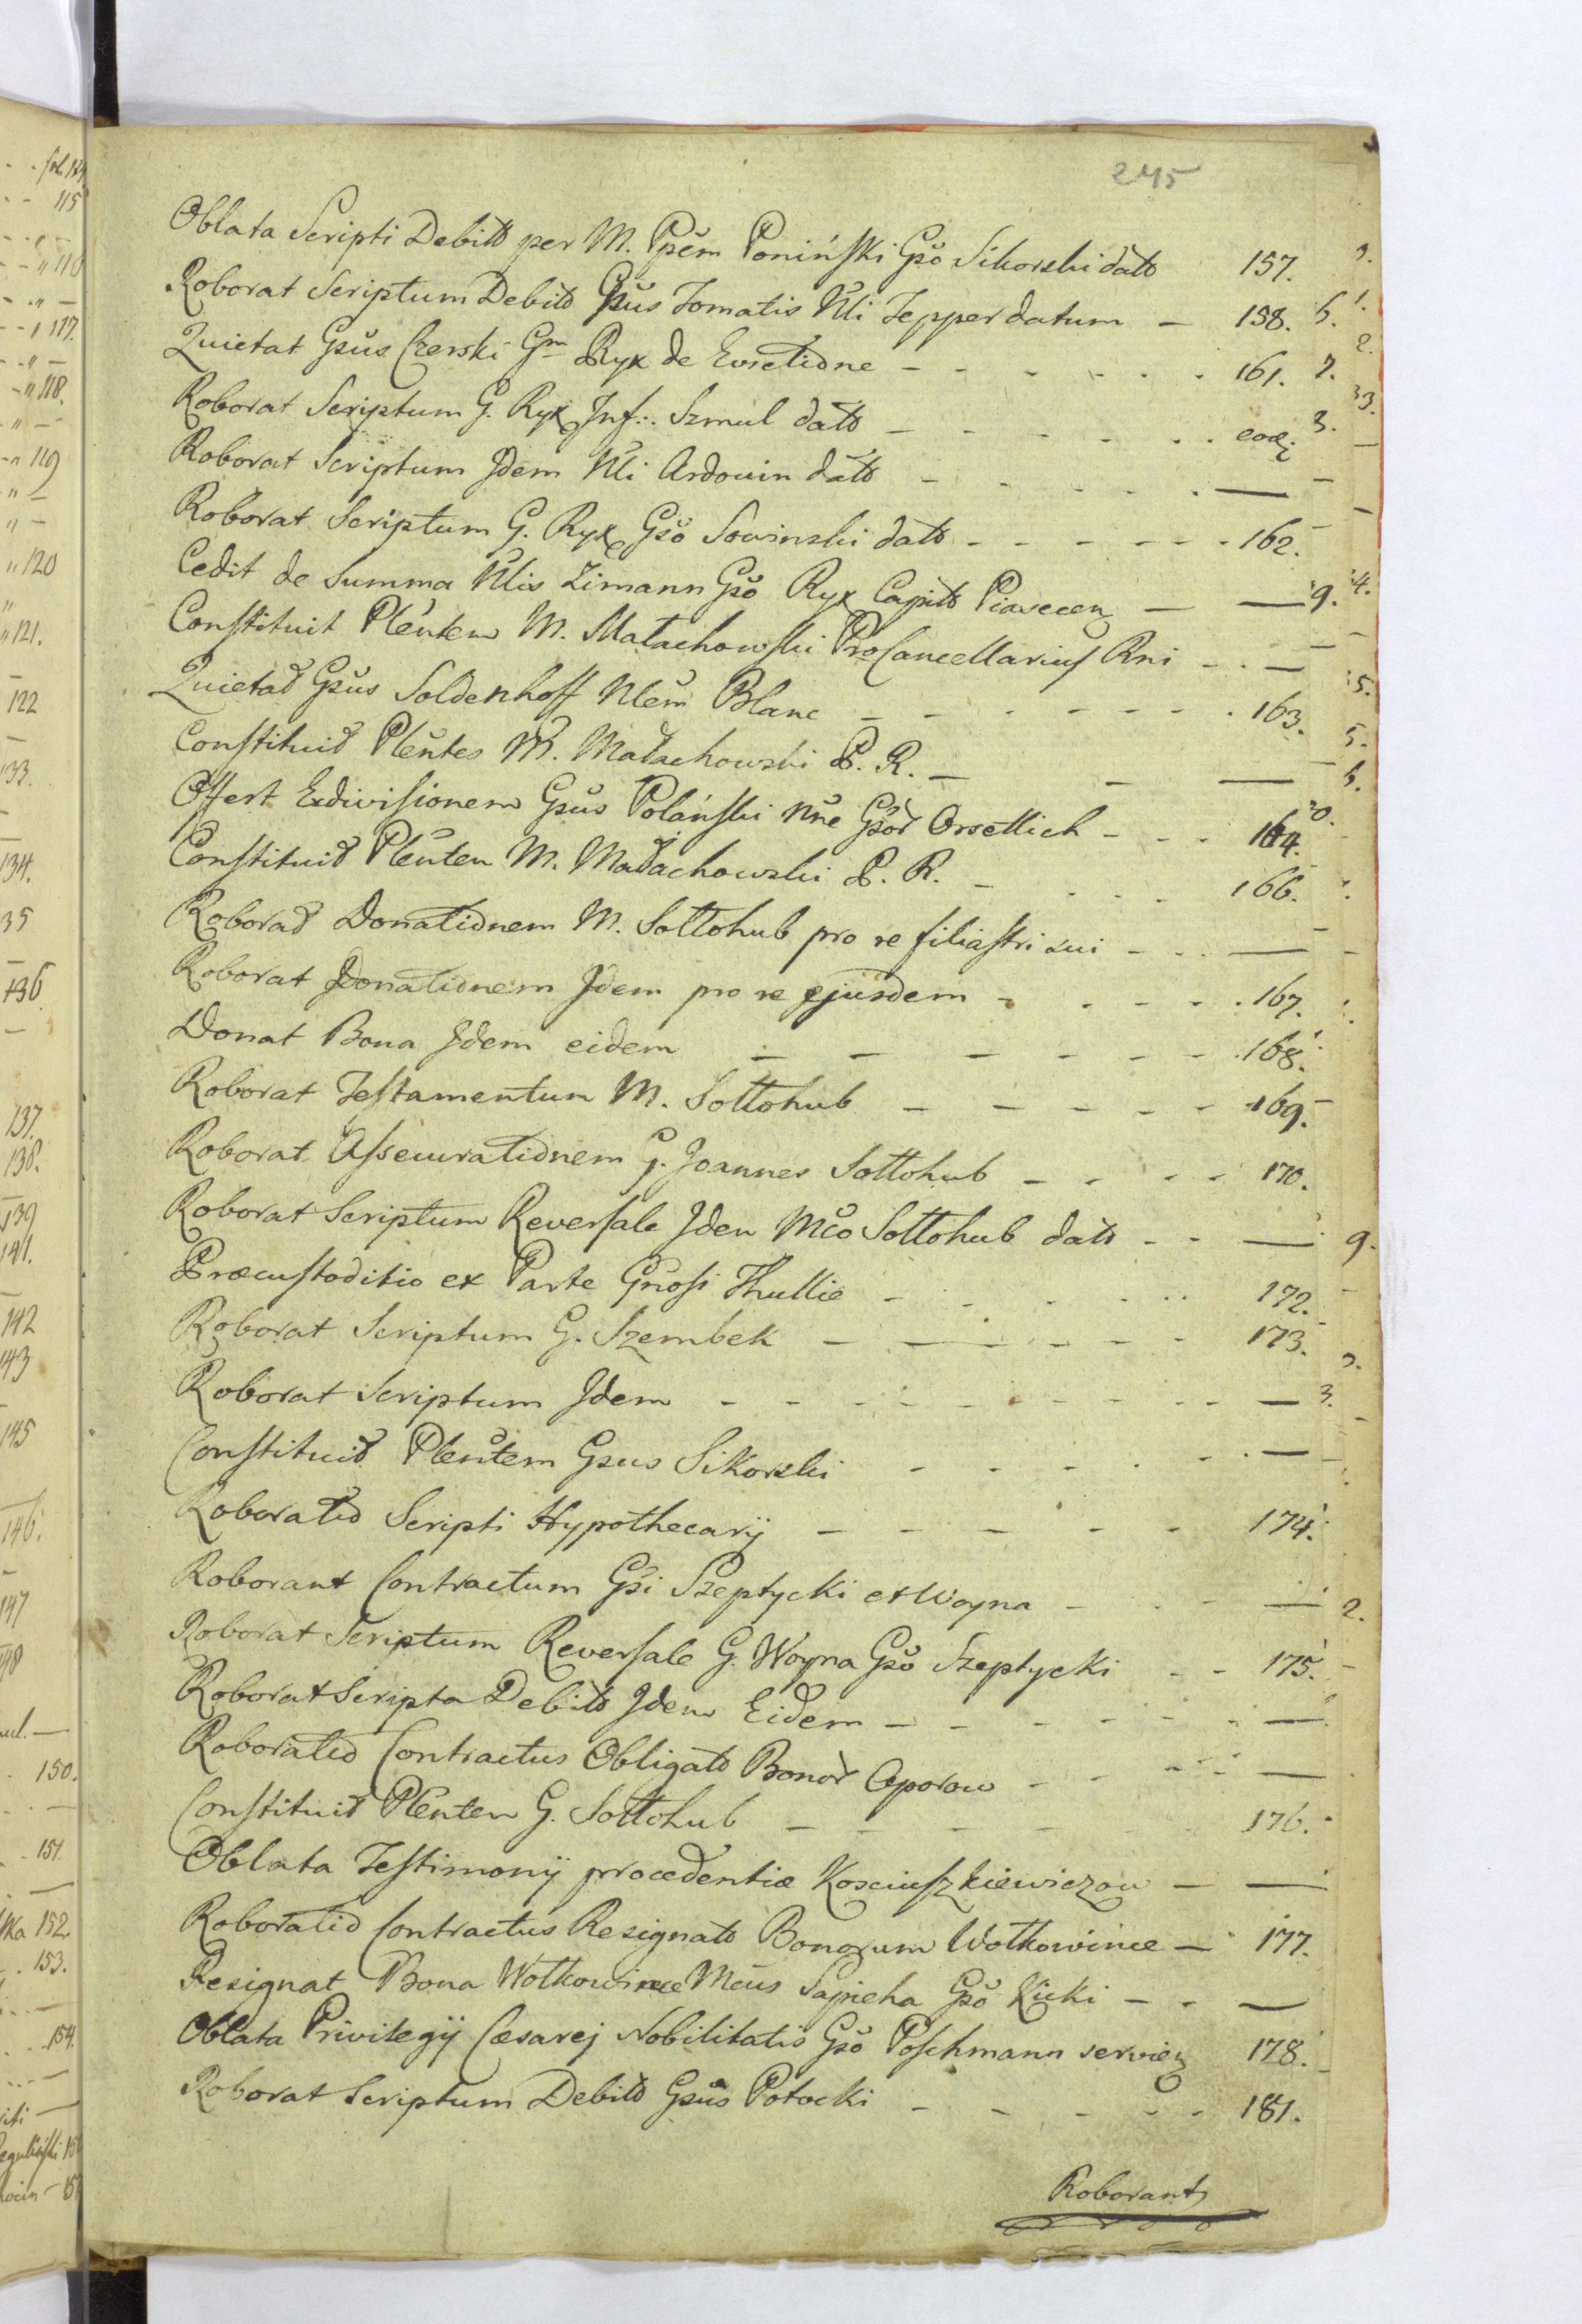 245
Oblata Scripti Debito per M. Ppem Poniński Gso Sikorski dato 157.
Roborat Scriptum Debito Gsus Tomatis Nli Tepper datum — 158.
Quietat Gsus Czerski Gm Ryx de Evictione - - - - - - 161.
Roborat Scriptum G. Ryx Inf: Szmul dato - - - - - - eod.
Roborat Scriptum Idem Nli Ardouin dato - - - - - —
Roborat Scriptum G. Ryx Gso Sowinski dato - - - - - - 162.
Cedit de Summa Nlis Zimann Gso Ryx Capito Piasecen — —
Constituit Plentem M. Małachowski ProCancellarius Rni - . —
Quietat Gsus Soldenhoff Nlem Blanc - - - - - - - 163.
Constituit Plentes M. Małachowski P. R. — — —
Offert Exdivisionem Gsus Polański Nne Gsor Orsettich - - - 164.
Constituit Plenten M. Małachowski P. R. - - - - 166.
Roborat Donationem M. Sołłohub pro re filiastri sui - - - —
Roborat Donationem Idem pro re ejusdem - - - - - 167.
Donat Bona Idem eidem - - - - - - 168.
Roborat Testamentum M. Sołłohub - - - - - 169.
Roborat Assecurationem G. Joannes Sołłohub - - - - 170.
Roborat Scriptum Reversale Idem Mco Sołłohub dato - - —
Præcustoditio ex Parte Gnosi Thullie - - - - - - 172.
Roborat Scriptum G. Szembek - - - - - 173.
Roborat Scriptum Idem - - - - - - - - - —
Constituit Plentem Gsus Sikorski - - - - - - —
Roboratio Scripti Hypothecarij - - - - - 174.
Roborant Contractum Gsi Szeptycki et Woyna - - - —
Roborat Scriptum Reversale G. Woyna Gso Szeptycki - - 175.
Roborat Scripta Debito Idem Eidem - - - - - - —
Roboratio Contractus Obligato Bonor Oporow - - - - —
Constituit Plenten G. Sołłohub - - - - - 176.
Oblata Testimonij procedentiæ Kosciuszkiewiczow — —
Roboratio Contractus Resignato Bonorum Wołkowince — 177.
Resignat Bona Wołkowince Mcus Sapieha Gso Kicki - - —
Oblata Privilegij Cæsarej Nobilitatis Gso Poschmann servien 178.
Roborat Scriptum Debito Gsus Potocki - - - - - 181.
Roborant